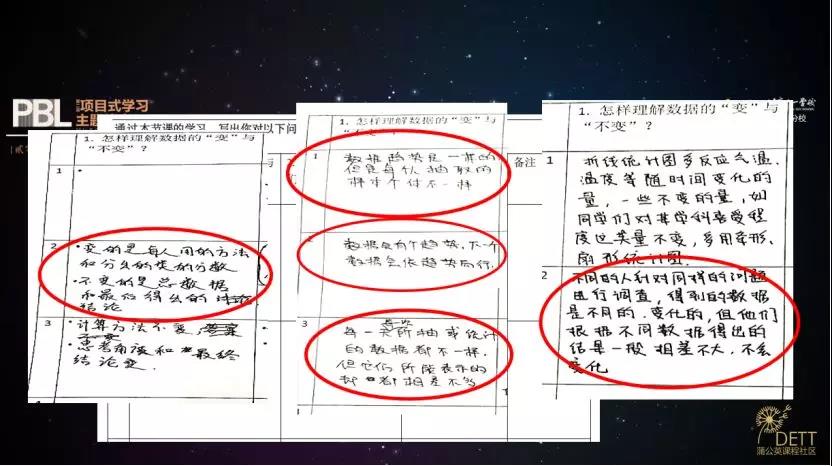 PBL 项目式学习
主题
分校
通过本节课的学习，写出你对以下问
备注
1. 怎样理解数据的“变”与
“不变”？
1
2
·变的是每人用的方法
和分出的类的分数
·不变的是总数据
和最后得出的
结论
3
·计算方法不变
·思考角度和最终
结论变.
1. 怎样理解数据的“变”与
“不变”？
1
数据趋势是一样的
但是每次抽取的
样本个体不一样
数据会有个趋势，下一个
数据会依趋势而行.
3
每一类所抽或统计
的数据都不一样，
但它们所能表示的
都相差不多
1. 怎样理解数据的“变”与
“不变”？
1
折线统计图多反应气温、
温度等随时间变化的
量，一些不变的量，如
同学们对某学科喜爱程
度这类量不变，多用条形、
扇形统计图.
2
不同的人针对同样的问题
进行调查，得到的数据
是不同的，变化的，但他们
根据不同数据得出的
结果一般相差不大，不会
变化
DETT
蒲公英课程社区